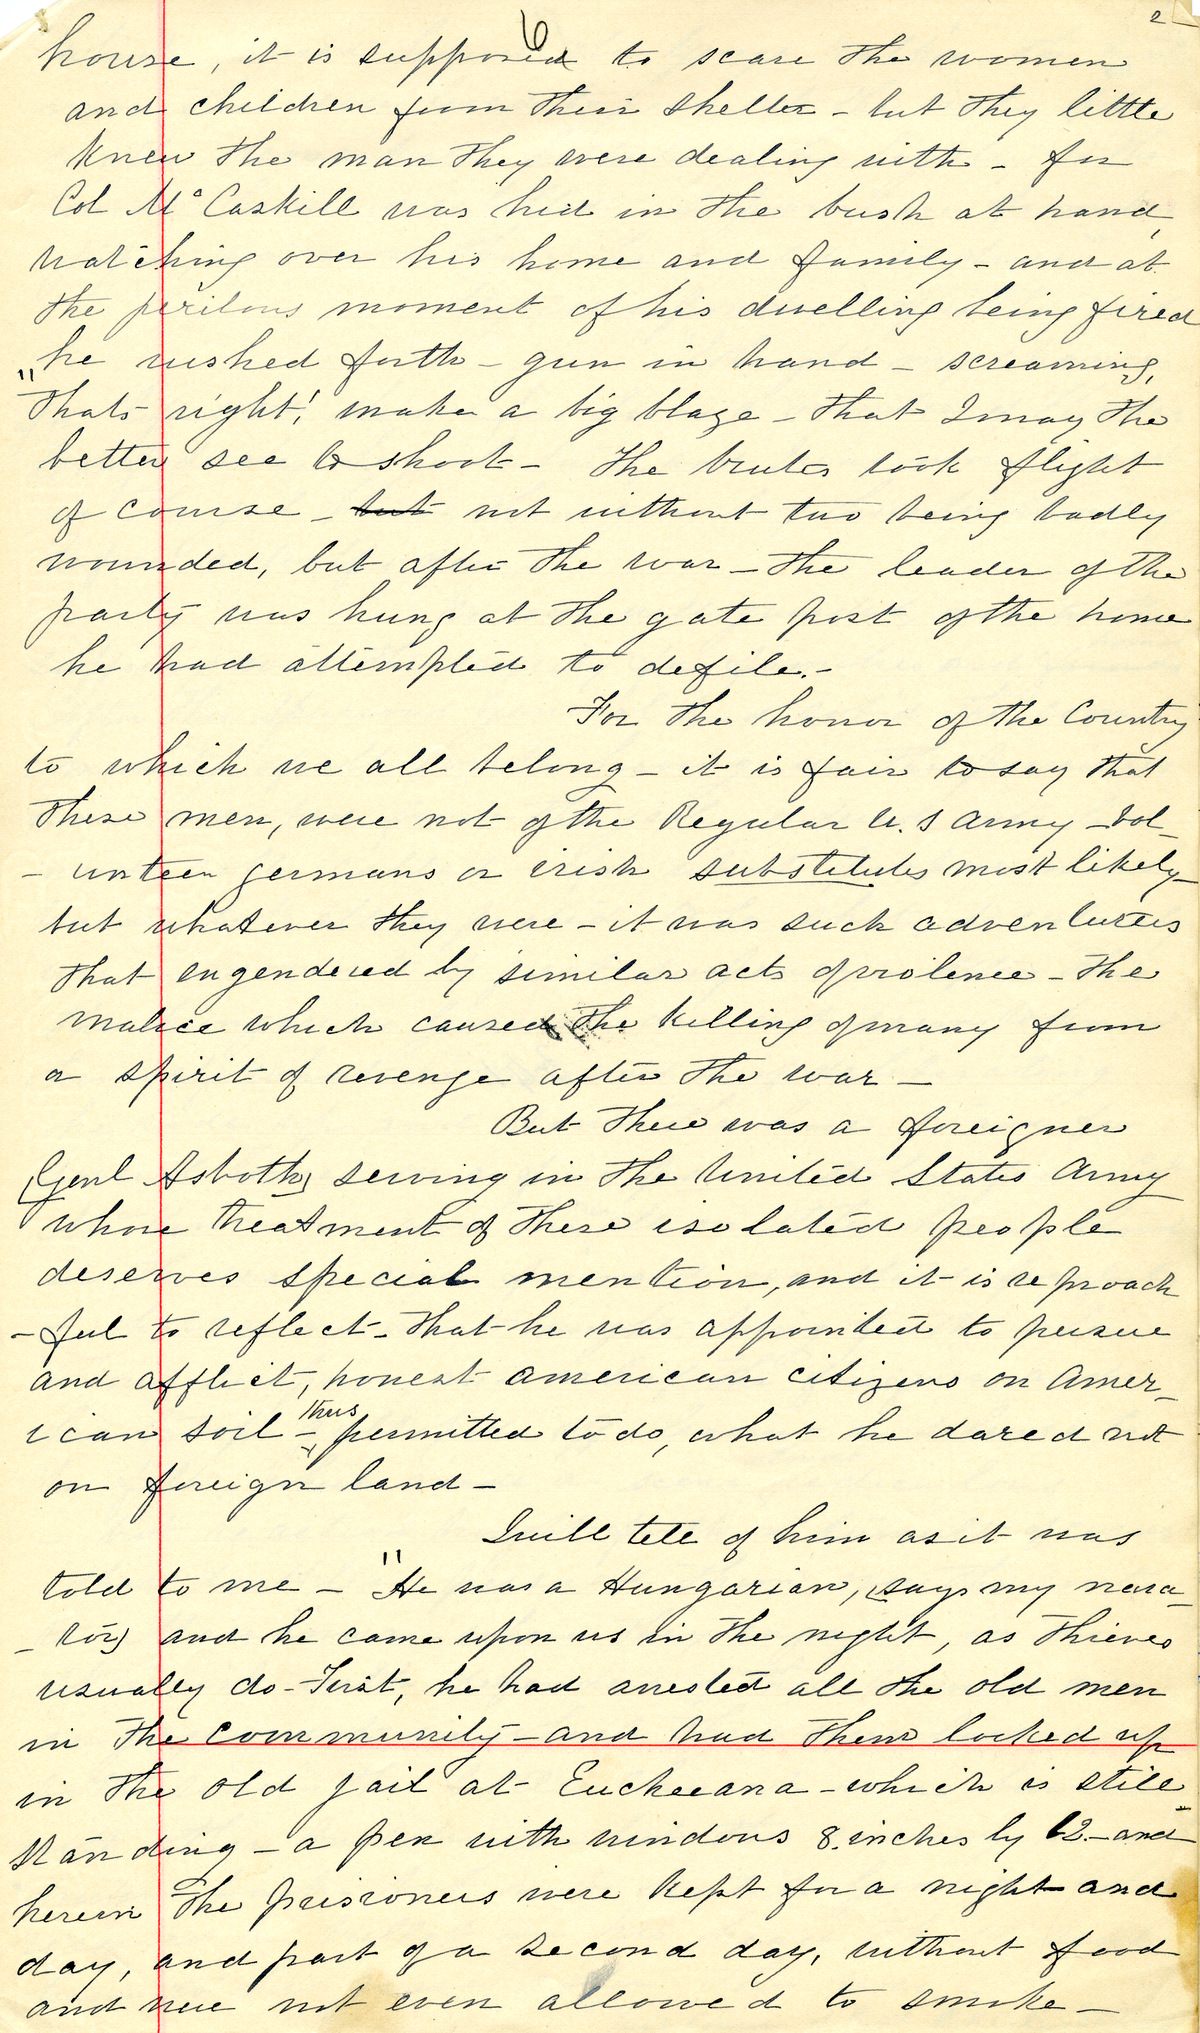 2
house, it is supposed to scare the women
and children from their shelter - but they little
knew the man they were dealing with - for
Col Mc Caskill was hid in the bush at hand,
watching over his home and family - and at
the perilous moment of his dwelling being fired
he rushed forth - gun in hand - screaming,
"Thats right! make a big blaze - that I may the
better see to shoot - The brutes took flight
of course - but not without two being badly
wounded, but after the war - the leader of the
party was hung at the gate post of the home
he had attempted to defile. -
For the honor of the Country
to which we all belong - it is fair to say that
these men, were not of the Regular U.S Army - vol-
- unteer germans or irish substitutes most likely
but whatever they were - it was such adventurers
that engendered by similar acts of violence - the
malice which caused the killing of many from
a spirit of revenge after the war -
But there was a foreigner
(Genl Asboth) serving in the United States Army
whose treatment of these isolated people
deserves special mention, and it is reproach
- ful to reflect - that he was appointed to pursue
and afflict, honest american citizens on Amer-
ican soil - thus permitted to do, what he dared not
on foreign land -
I will tell of him as it was
told to me - "He was a Hungarian, says my narra-
- tor) and he came upon us in the night, as thieves
usually do - First, he had arrested all the old men
in the community - and had them locked up
in the old jail at Eucheeana - which is still
standing - a pen with windows 8 inches by 12. - and
herein the prisoners were kept for a night and
day, and part of a second day, without food
and were not even allowed to smoke -